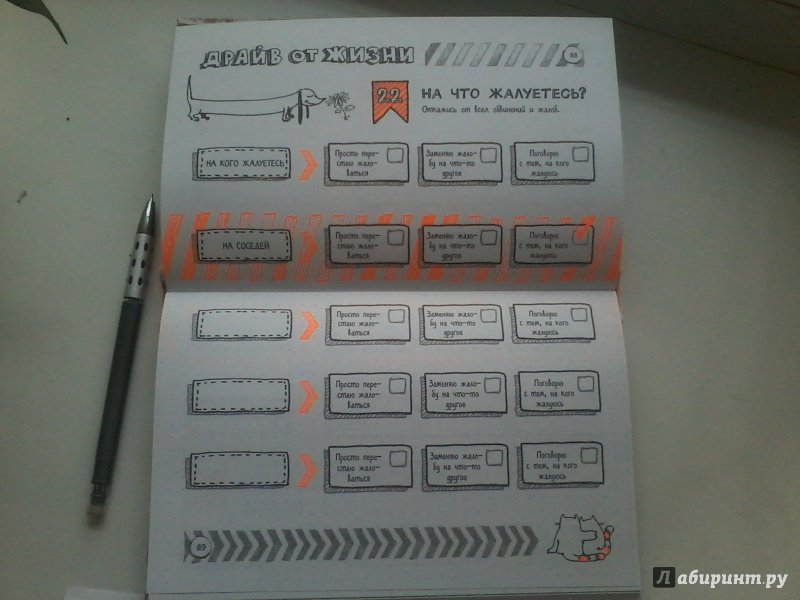 ДРАЙВ ОТ ЖИЗНИ
88
22
НА ЧТО ЖАЛУЕТЕСЬ?
Откажись от всех обвинений и жалоб.
НА КОГО ЖАЛУЕТЕСЬ
Просто пере-
стаю жало-
ваться
Заменяю жало-
бу на что-то
другое
Поговорю
с тем, на кого
жалуюсь
НА СОСЕДЕЙ
Просто пере-
стаю жало-
ваться
Заменяю жало-
бу на что-то
другое
Поговорю
с тем, на кого
жалуюсь
Просто пере-
стаю жало-
ваться
Заменяю жало-
бу на что-то
другое
Поговорю
с тем, на кого
жалуюсь
Просто пере-
стаю жало-
ваться
Заменяю жало-
бу на что-то
другое
Поговорю
с тем, на кого
жалуюсь
Просто пере-
стаю жало-
ваться
Заменяю жало-
бу на что-то
другое
Поговорю
с тем, на кого
жалуюсь
89
Лабиринт.ру